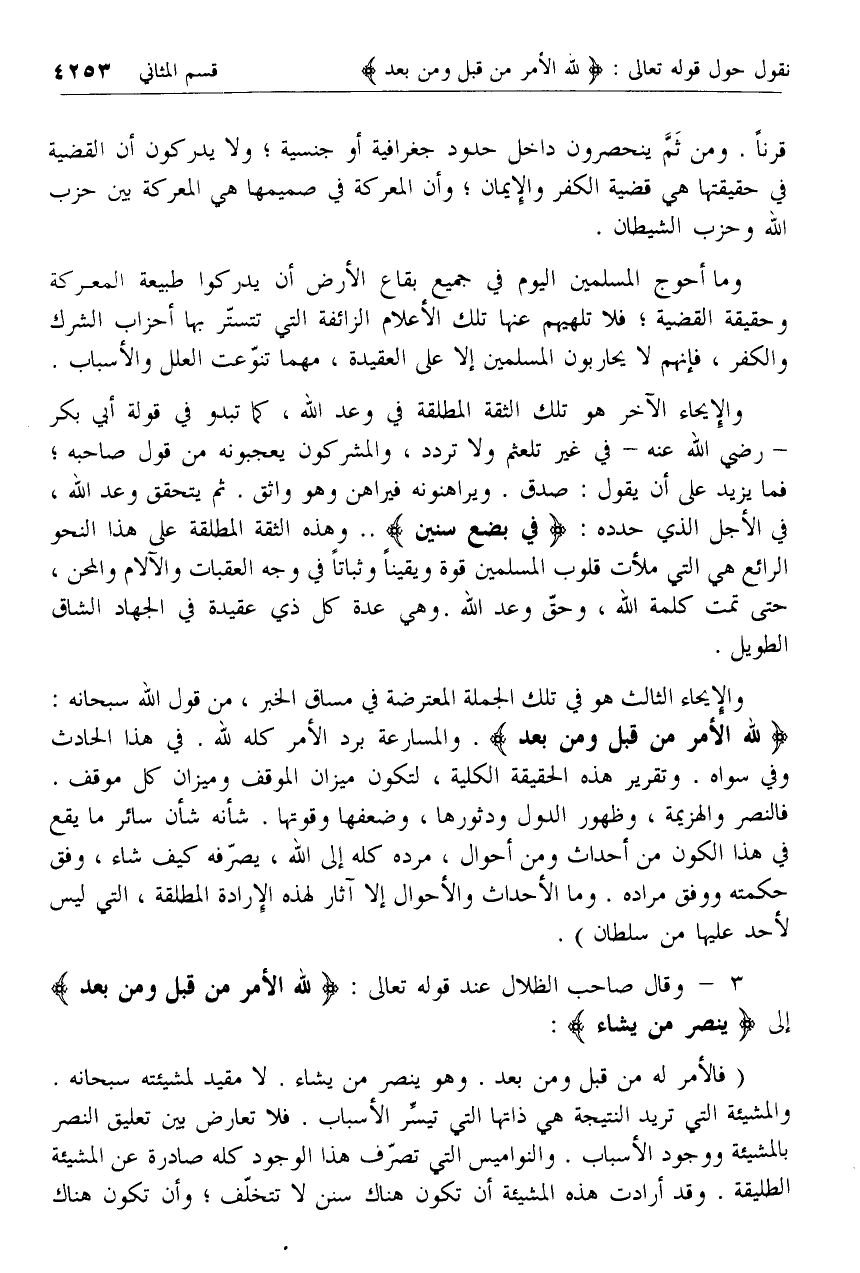 نقول حول قوله تعالى : ﴿ لله الأمر من قبل ومن بعد ﴾ قسم المثاني ٤٢٥٣
قرناً . ومن ثَمَّ ينحصرون داخل حدود جغرافية أو جنسية ؛ ولا يدركون أن القضية
في حقيقتها هي قضية الكفر والإيمان ؛ وأن المعركة في صميمها هي المعركة بين حزب
الله وحزب الشيطان .
وما أحوج المسلمين اليوم في جميع بقاع الأرض أن يدركوا طبيعة المعركة
وحقيقة القضية ؛ فلا تلهيهم عنها تلك الأعلام الزائفة التي تتستّر بها أحزاب الشرك
والكفر ، فإنهم لا يحاربون المسلمين إلا على العقيدة ، مهما تنوّعت العلل والأسباب .
والإيحاء الآخر هو تلك الثقة المطلقة في وعد الله ، كما تبدو في قولة أبي بكر
– رضي الله عنه – في غير تلعثم ولا تردد ، والمشركون يعجبونه من قول صاحبه ؛
فما يزيد على أن يقول : صدق . ويراهنونه فيراهن وهو واثق . ثم يتحقق وعد الله ،
في الأجل الذي حدده : ﴿ في بضع سنين ﴾ .. وهذه الثقة المطلقة على هذا النحو
الرائع هي التي ملأت قلوب المسلمين قوة ويقيناً وثباتاً في وجه العقبات والآلام والمحن ،
حتى تمت كلمة الله ، وحقّ وعد الله . وهي عدة كل ذي عقيدة في الجهاد الشاق
الطويل .
والإيحاء الثالث هو في تلك الجملة المعترضة في مساق الخبر ، من قول الله سبحانه :
﴿ لله الأمر من قبل ومن بعد ﴾ . والمسارعة برد الأمر كله لله . في هذا الحادث
وفي سواه . وتقرير هذه الحقيقة الكلية ، لتكون ميزان الموقف وميزان كل موقف .
فالنصر والهزيمة ، وظهور الدول ودثورها ، وضعفها وقوتها . شأنه شأن سائر ما يقع
في هذا الكون من أحداث ومن أحوال ، مرده كله إلى الله ، يصرّفه كيف شاء ، وفق
حكمته ووفق مراده . وما الأحداث والأحوال إلا آثار لهذه الإرادة المطلقة ، التي ليس
لأحد عليها من سلطان ) .
٣ – وقال صاحب الظلال عند قوله تعالى : ﴿ لله الأمر من قبل ومن بعد ﴾
إلى ﴿ ينصر من يشاء ﴾ :
( فالأمر له من قبل ومن بعد . وهو ينصر من يشاء . لا مقيد لمشيئته سبحانه .
والمشيئة التي تريد النتيجة هي ذاتها التي تيسِّر الأسباب . فلا تعارض بين تعليق النصر
بالمشيئة ووجود الأسباب . والنواميس التي تصرّف هذا الوجود كله صادرة عن المشيئة
الطليقة . وقد أرادت هذه المشيئة أن تكون هناك سنن لا تتخلّف ؛ وأن تكون هناك